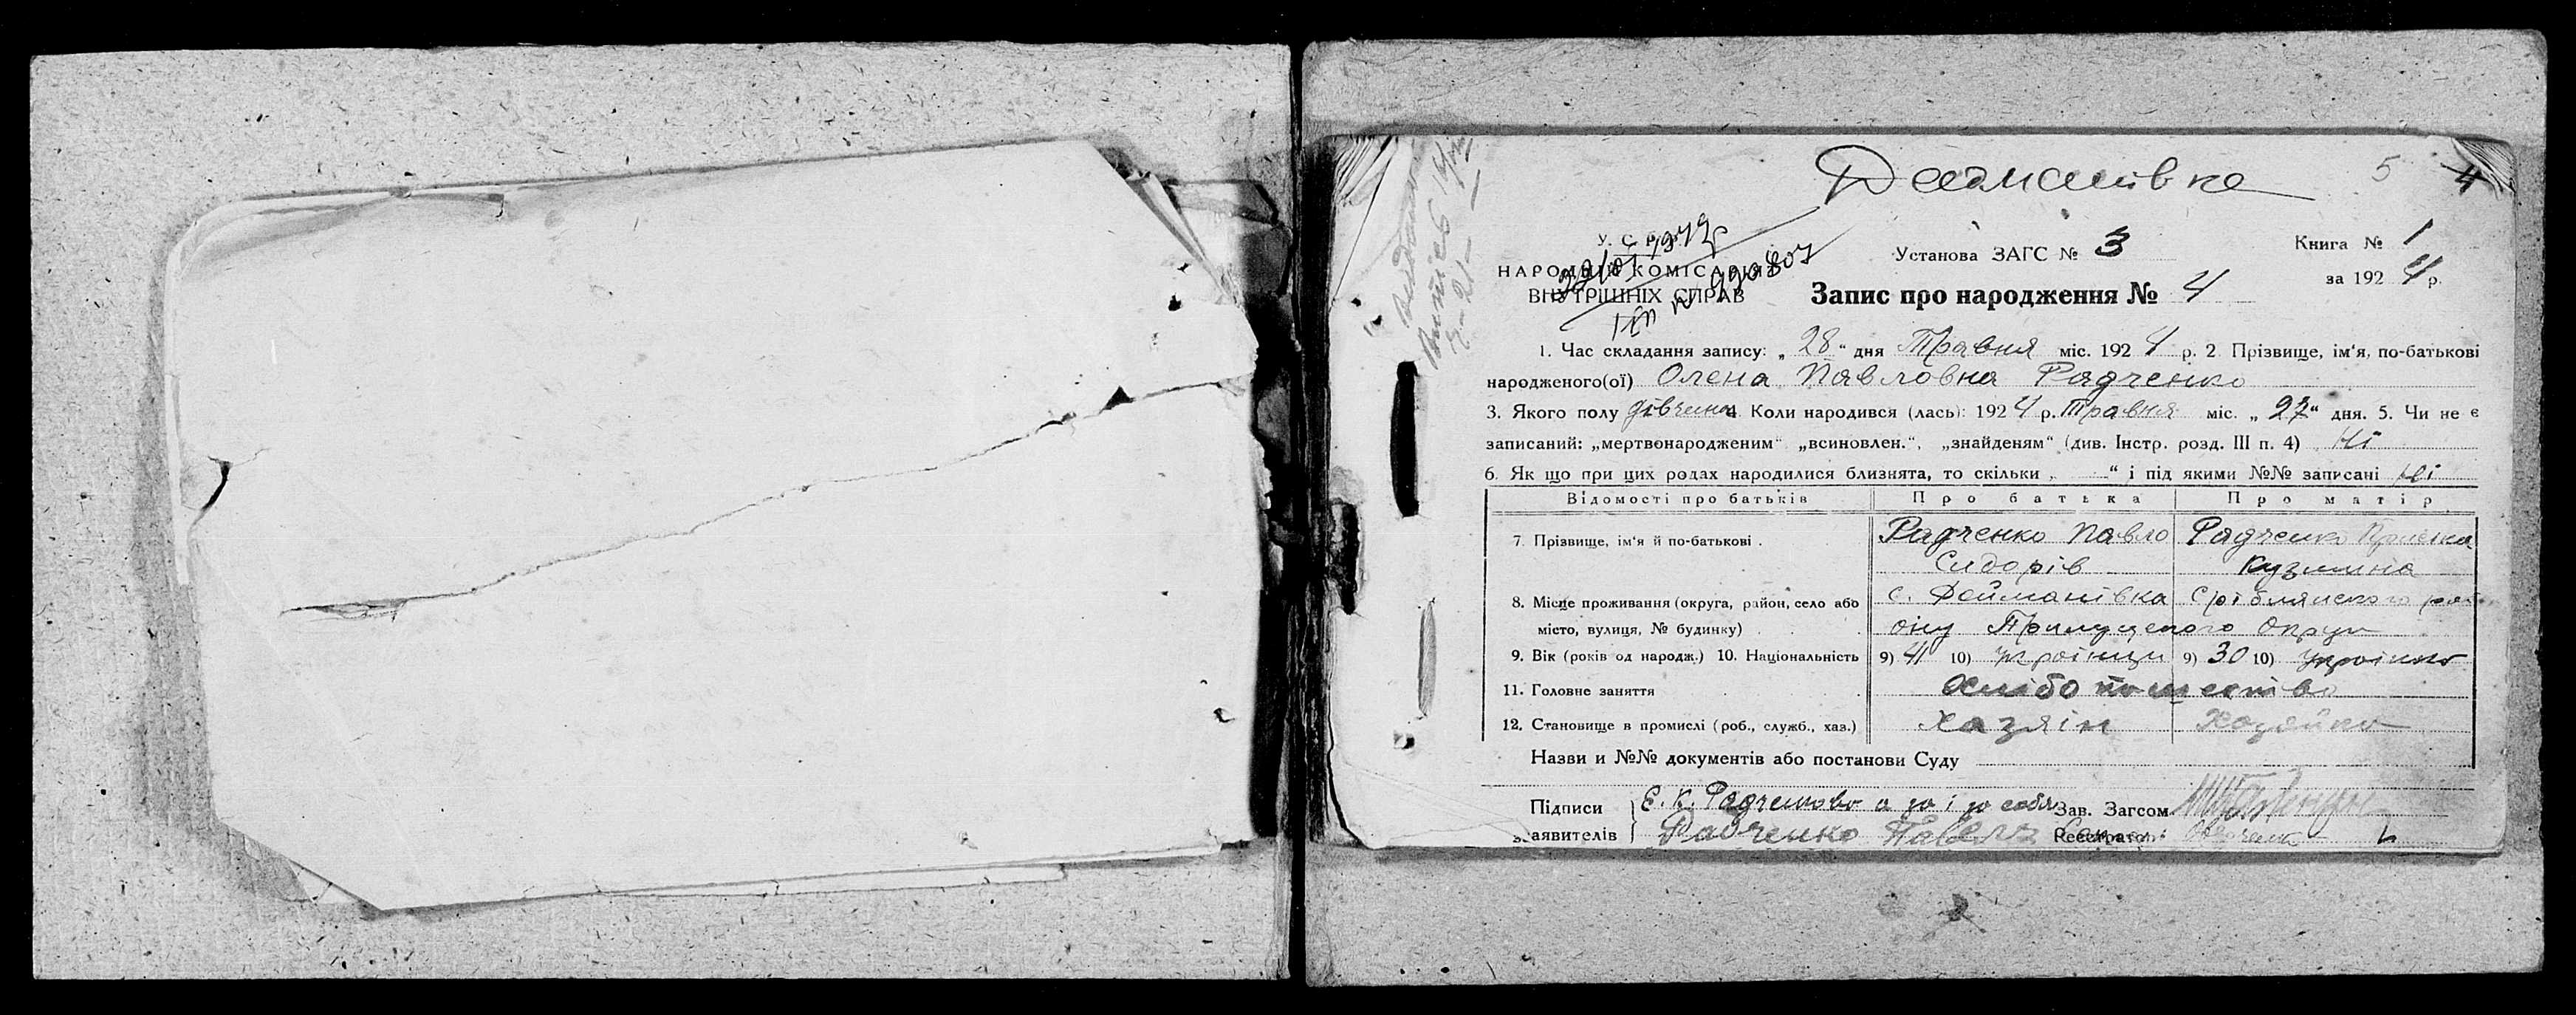 Деймаnівка
5 4
У. С. Р. Р.
НАРОДНІЙ КОМІСАРІЯТ
ВНУТРІШНІХ СПРАВ
Установа ЗАГС № 3
Книга № 1
за 1924 р.
Запис про народження № 4
1. Час складання запису: „28“ дня Травня міс. 1924 р. 2 Прізвище, ім‘я, по-батькові
народженого(ої) Олена Павловна Радченко
3. Якого полу дівчина 4. Коли народився (лась): 1924 р. Травня міс. „27“ дня. 5. Чи не є
записаний: „мертвонародженим“ „всиновлен.“, „знайденям“ (див. Інстр. розд. III п. 4) Ні
6. Як що при цих родах народилися близнята, то скільки „ “ і під якими №№ записані Ні
Відомості про батьків Про батька Про матір
7. Прізвище, ім‘я й по-батькові . Радченко Павло Радченко
Сидорів Кузмина
8. Місце проживання (округа, район, село або с. Дейманівка Сріблянского рай
місто, вулиця, № будинку) . . . ону Прилуцкого Округи
9. Вік (років од народж.) 10. Національність 9) 41 10) Українци 9) 30 10) Українка
11. Головне заняття Хліборобство
12. Становище в промислі (роб., служб., хаз.) Хазяін Хозяйка
Назви и №№ документів або постанови Суду
Підписи Е. К. Радченкова а за і за себя Зав. Загсом
заявителів Радченко Павелъ Реєстратор: